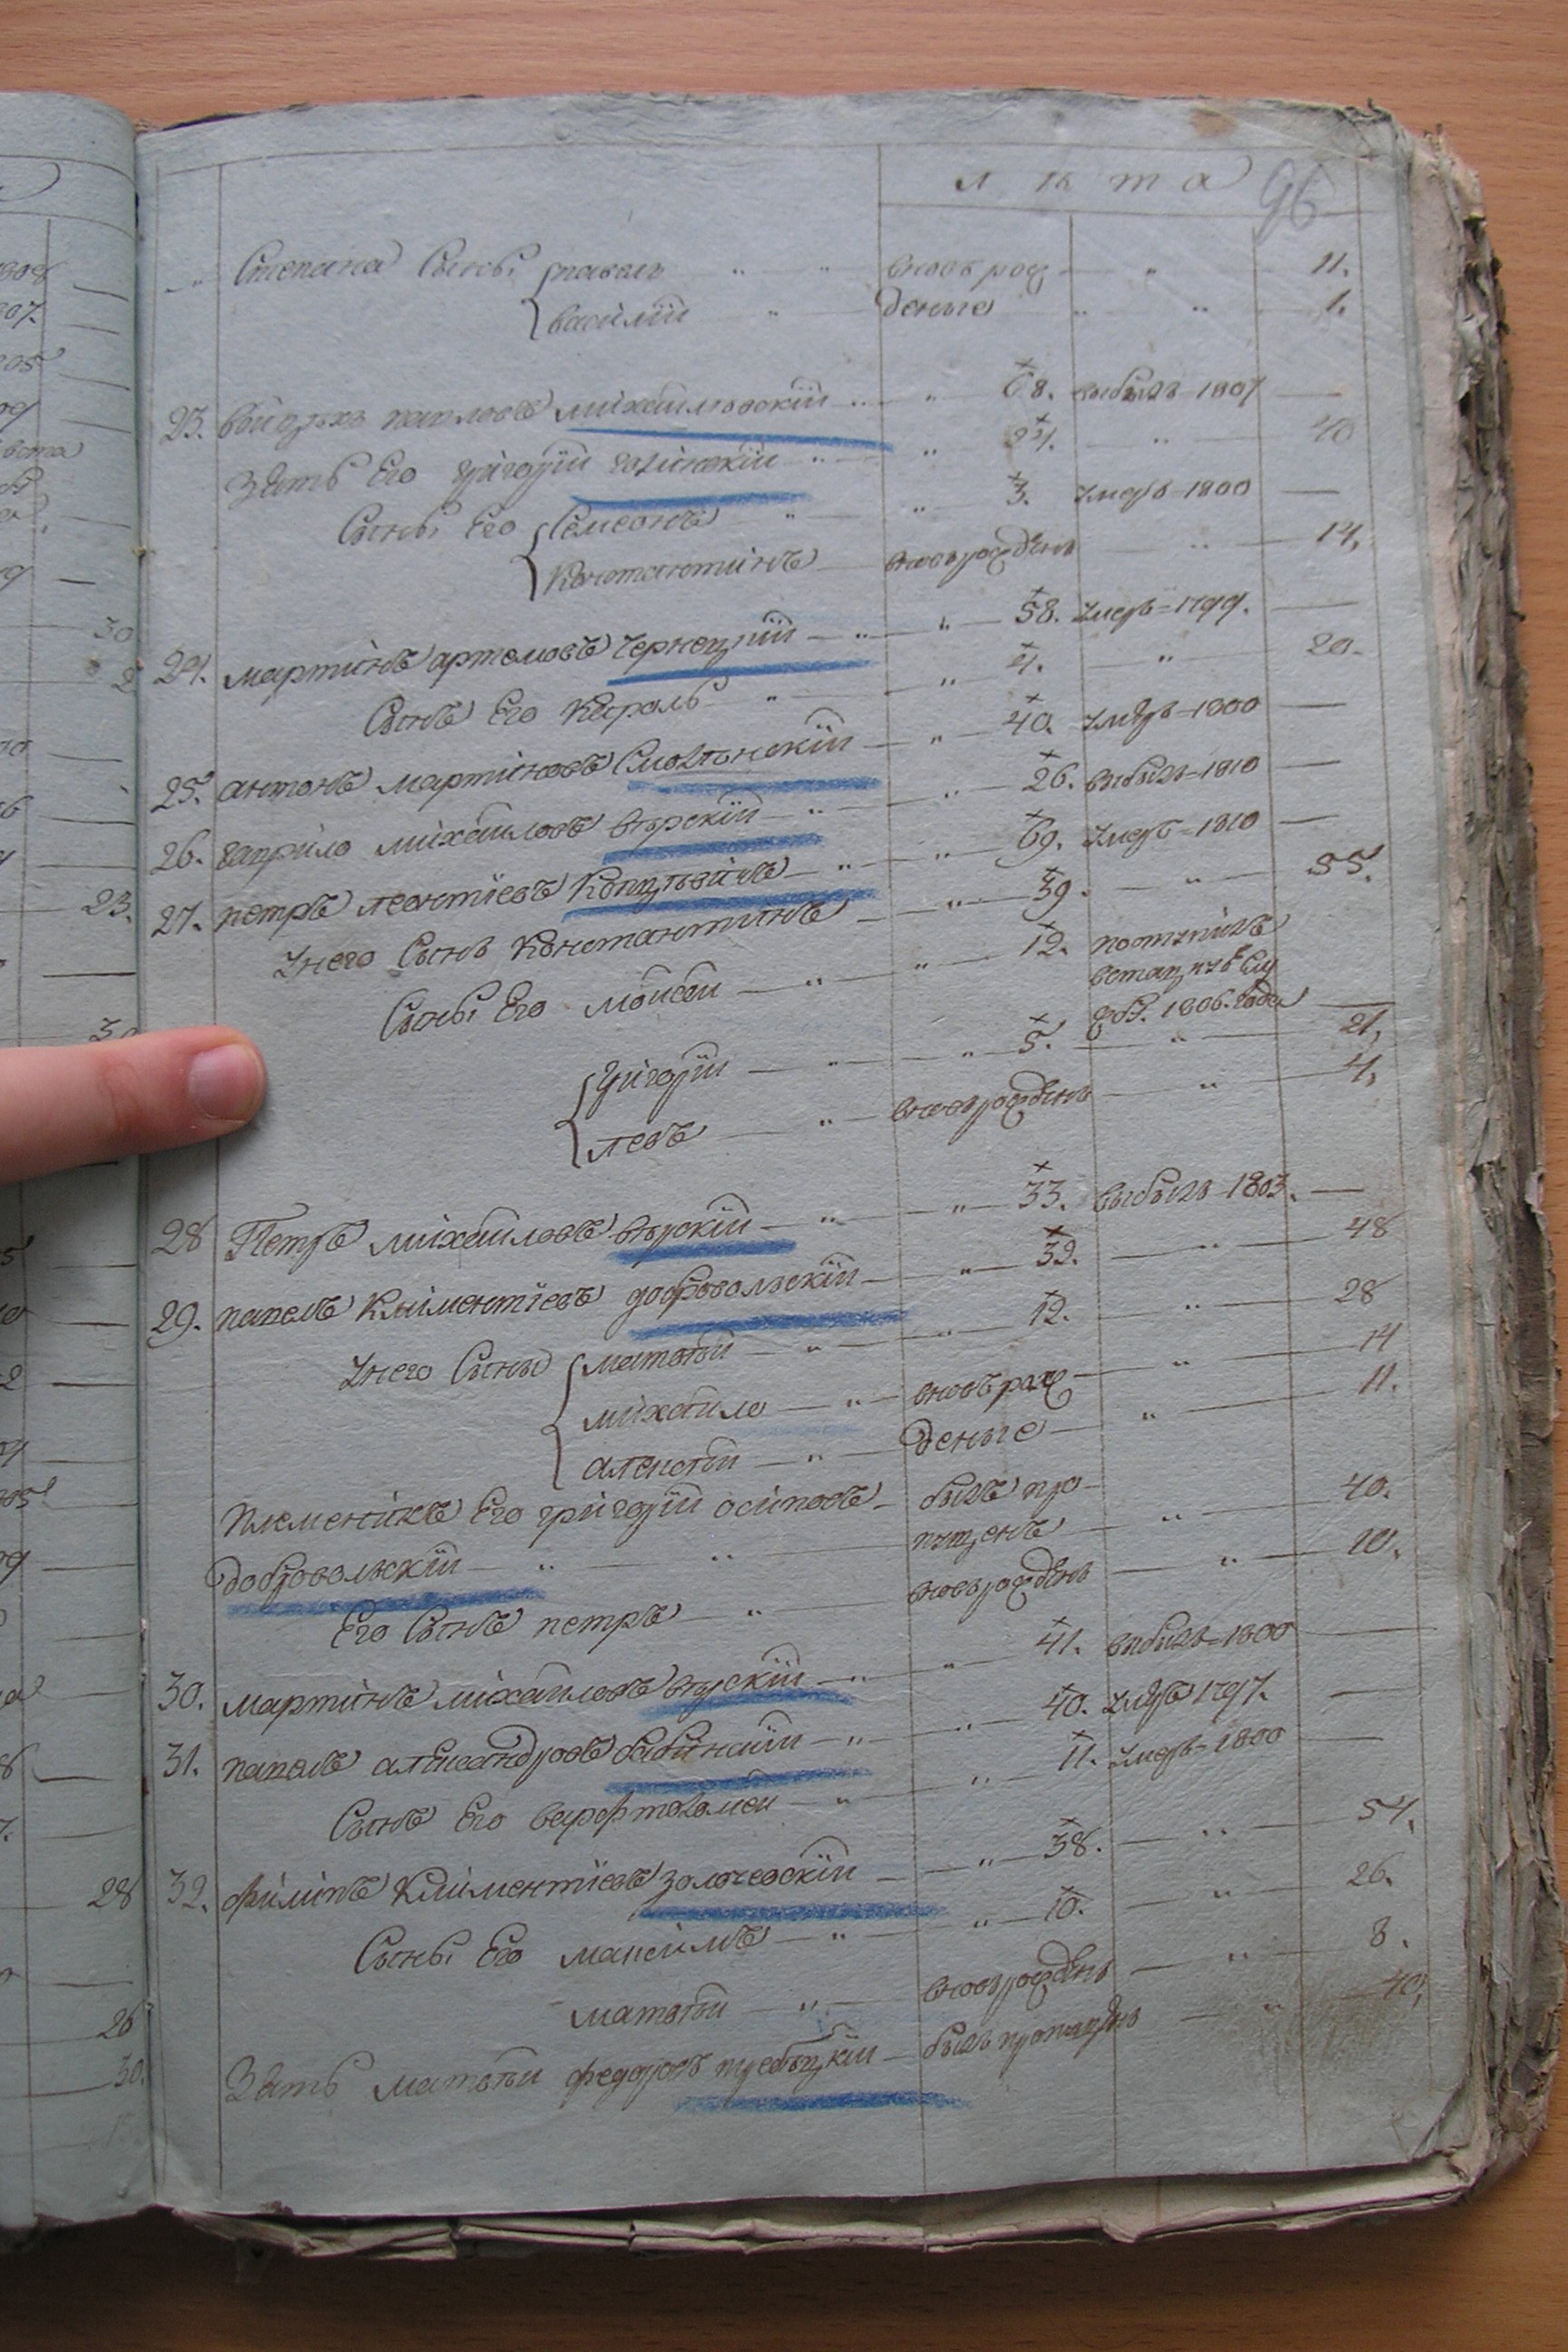 лѣта 96
Степана Сыны павелъ вновь рож 11.
василїй денные 1.
23. павловъ михайловскїй 68. выбылъ 1807
Зять Его григорїй 40
Сыны Его Семеонъ 3. умеръ 1800
Константинъ вновърожденъ 14,
24. мартинъ артемовъ Чернецкїй 58. умеръ 1799.
Сынъ Его Кароль 4. 20.
25. антонъ мартиновъ Смоленскїй 40. умеръ 1800
26. гаврило михайловъ вѣрскїй 26. выбылъ 1810
27. петръ леонтїевъ 69. умеръ 1810
унего Сынъ Константинъ 39. 55.
Сыны Его мойсей 12. поступилъ
встацкую Слу
жб. 1806. года
григорїй 5. 21,
левъ вновърожденъ 4,
28 Петръ михайловъ вѣрскїй 33. выбылъ 1803.
29. павелъ Климентїевъ добровольскїй 32. 48
унего Сыны матвѣй 12. 28
михайло вновь рож 14
алексѣй денные 11.
племенникъ Его григорїй осиповъ былъ про
добровольскїй пущенъ 40.
Его Сынъ петръ вновърожденъ 10.
30. мартинъ михайловъ вѣрскїй 41. выбылъ 1800
31. павелъ александровъ бабинскїй 40. умеръ 1797.
Сынъ Его варфтоломей 11. умеръ 1800
32. филипъ Климентїевъ золочевскїй 38. 54,
Сыны Его максимъ 10. 26.
матвѣй вновърожденъ 8.
Зять матвѣй федоровъ требѣцкїй былъ пропущенъ 40,